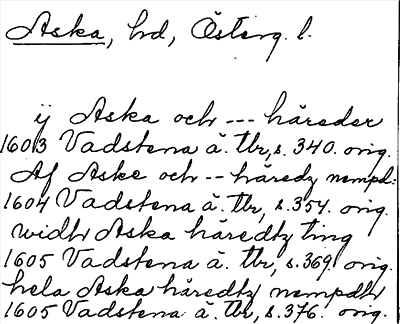 Aska, hrd, Österg. l.
ij Aska och --- häreder
1603 Vadstena ä. tbr, s. 340. orig.
Af Aske och -- häredz nempd:
1604 Vadstena ä. tbr, s. 354. orig.
widh Aska häredtz ting
1605 Vadstena ä. tbr, s. 369. orig.
hela Aska häredtz nempdh
1605 Vadstena ä. tbr, s. 376. orig.